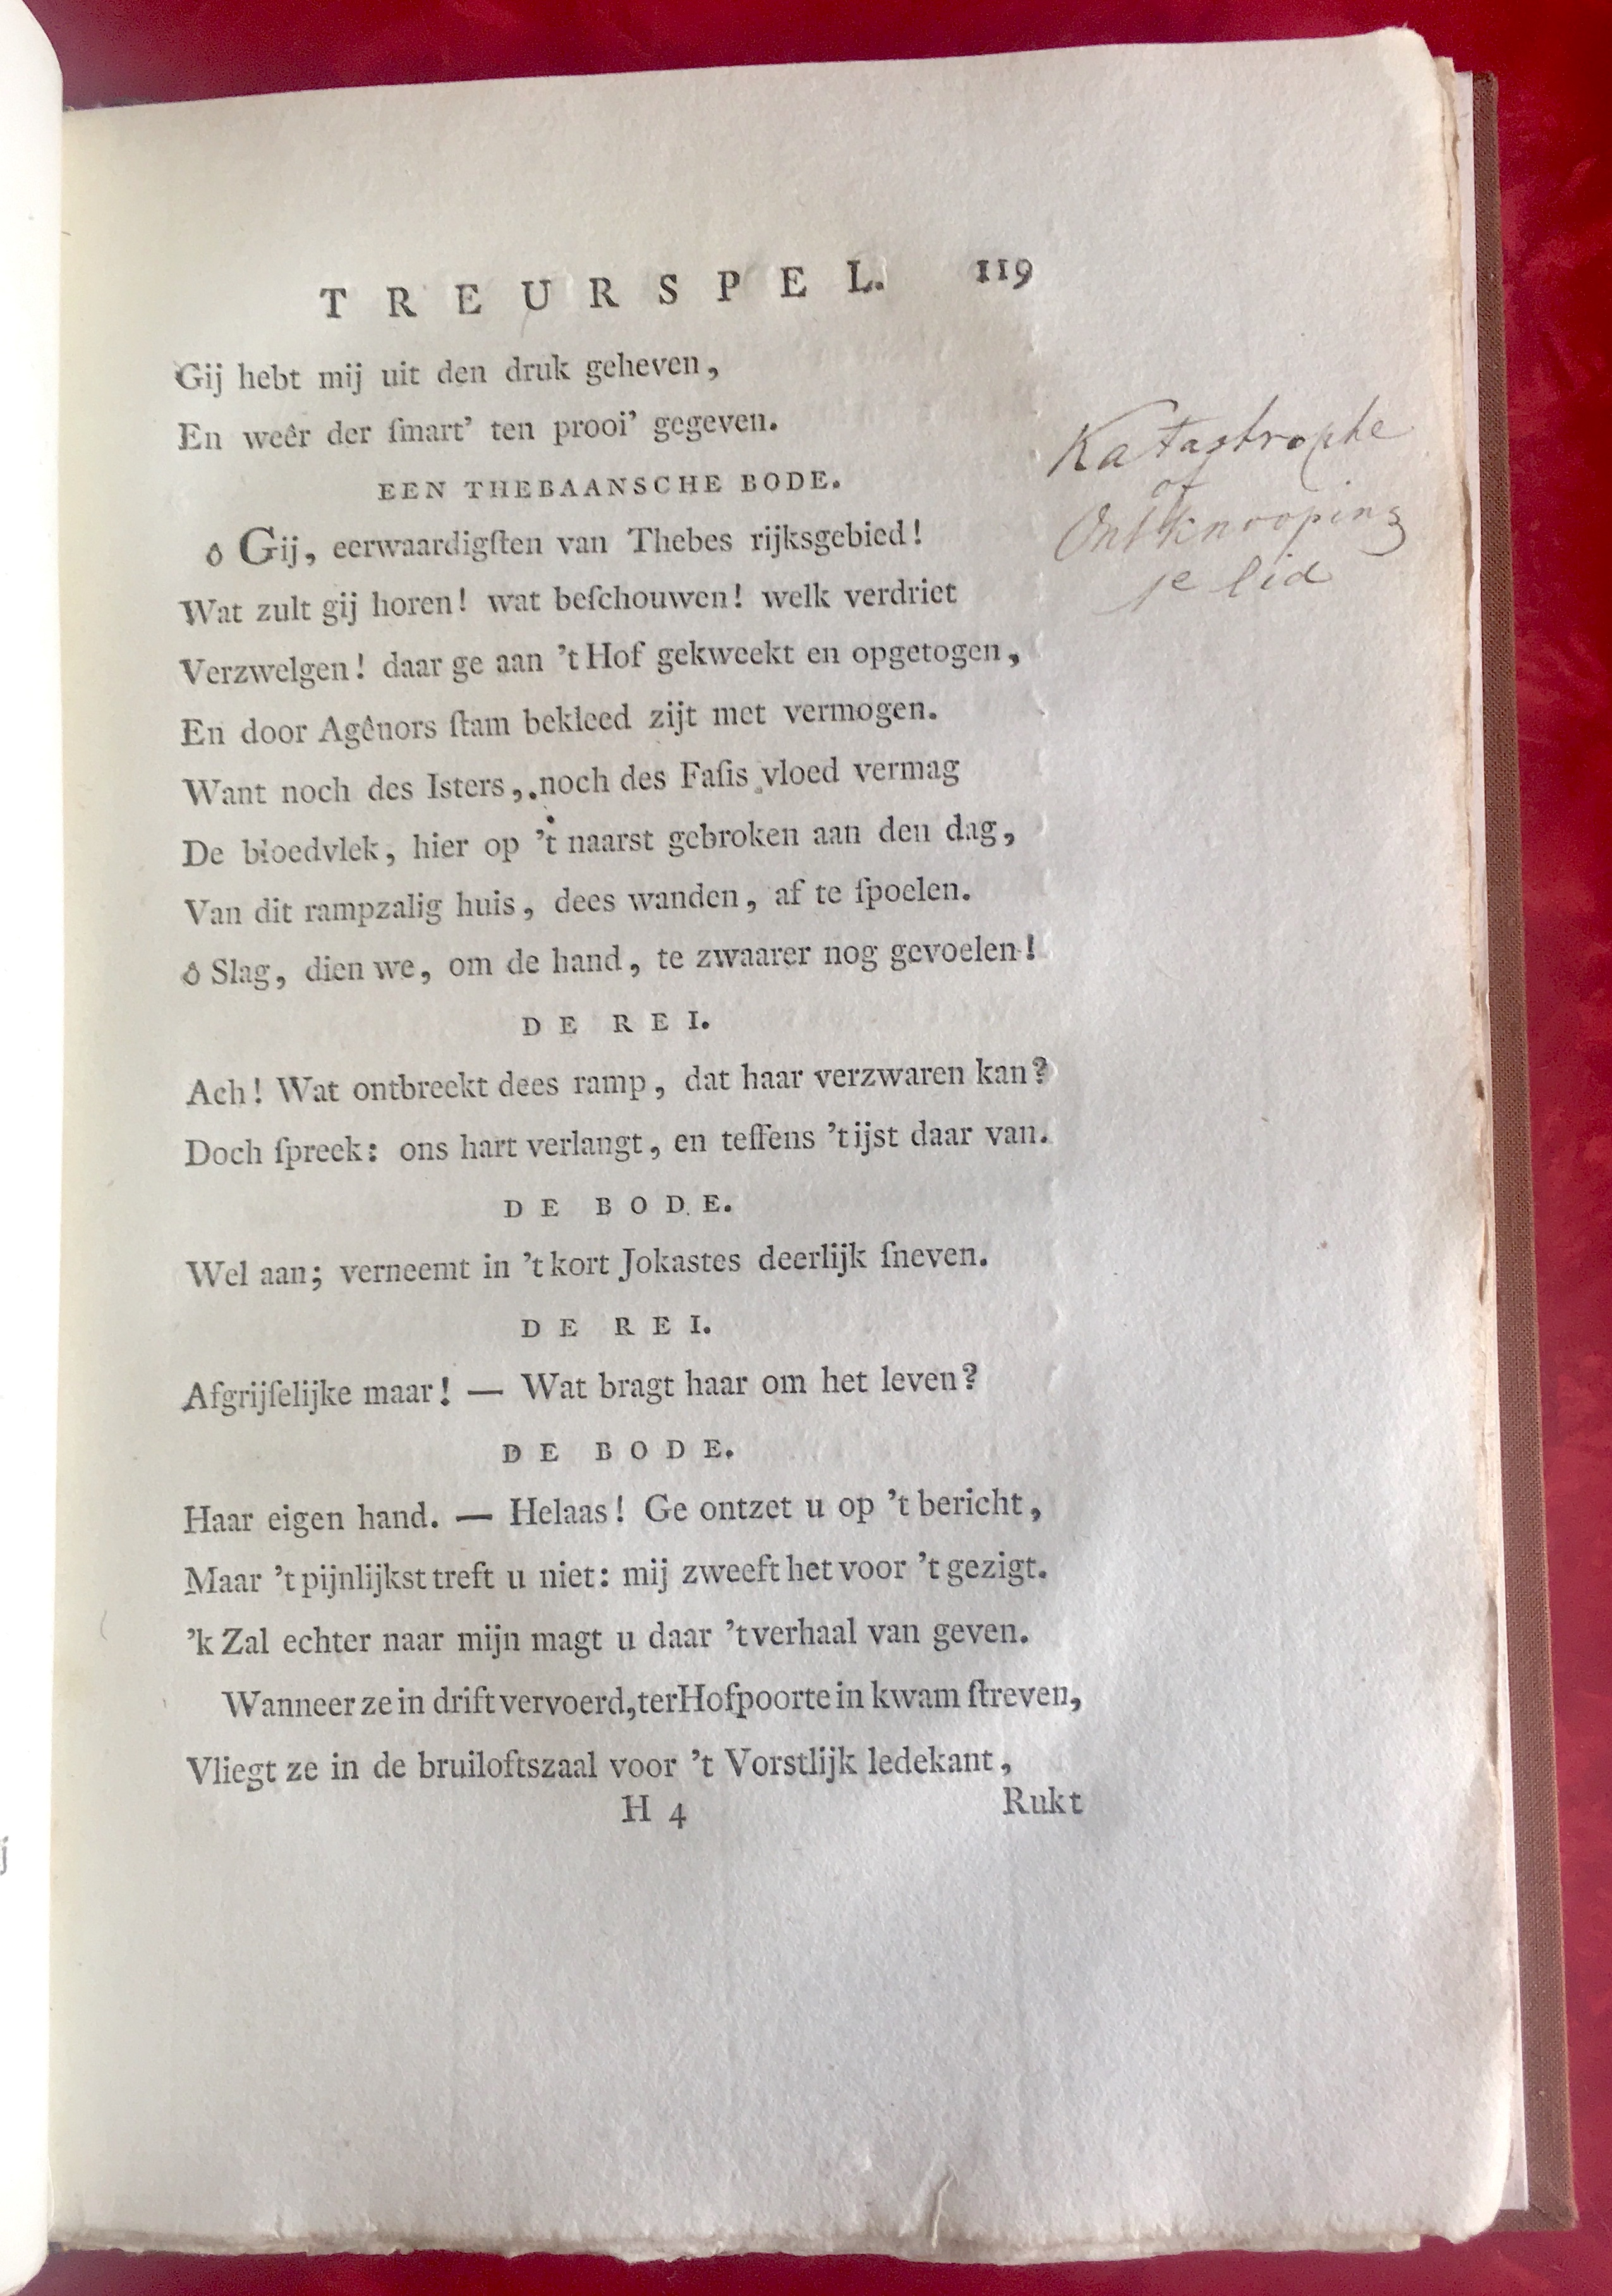 TREURSPEL. 119
Gij hebt mij uit den druk geheven,
En weêr der ſmart' ten prooi' gegeven.
EEN THEBAANSCHE BODE.
ô Gij, eerwaardigſten van Thebes rijksgebied!
Wat zult gij horen! wat beſchouwen! welk verdriet
Verzwelgen! daar ge aan 't Hof gekweekt en opgetogen,
En door Agênors ſtam bekleed zijt met vermogen.
Want noch des Isters, noch des Faſis vloed vermag
De bloedvlek, hier op 't naarst gebroken aan den dag,
Van dit rampzalig huis, dees wanden, af te ſpoelen.
ô Slag, dien we, om de hand, te zwaarer nog gevoelen!
DE REI.
Ach! Wat ontbreekt dees ramp, dat haar verzwaren kan?
Doch ſpreek: ons hart verlangt, en teſſens 't ijst daar van.
DE BODE.
Wel aan; verneemt in 't kort Jokastes deerlijk ſneven.
DE REI.
Afgrijſelijke maar! — Wat bragt haar om het leven?
DE BODE.
Haar eigen hand. — Helaas! Ge ontzet u op 't bericht,
Maar 't pijnlijkst treft u niet: mij zweeft het voor 't gezigt.
'k Zal echter naar mijn magt u daar 't verhaal van geven.
Wanneer ze in drift vervoerd, ter Hofpoorte in kwam ſtreven,
Vliegt ze in de bruiloftszaal voor 't Vorstlijk ledekant,
H 4 Rukt
Katastrophe
of
Ontknooping
je lid
j